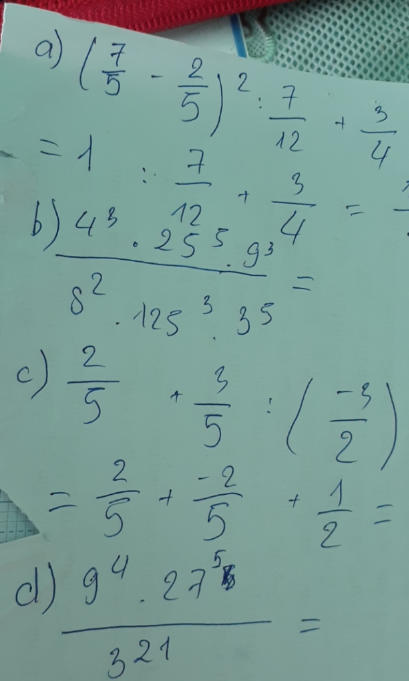 a) (7/5 - 2/5)² : 7/12 + 3/4
= 1 : 7/12 + 3/4 =
b) 4³ . 25⁵ . 9³ / 8² . 125³ . 3⁵ =
c) 2/5 + 3/5 : (-3/2)
= 2/5 + -2/5 + 1/2 =
d) 9⁴ . 27⁵ / 3²¹ =